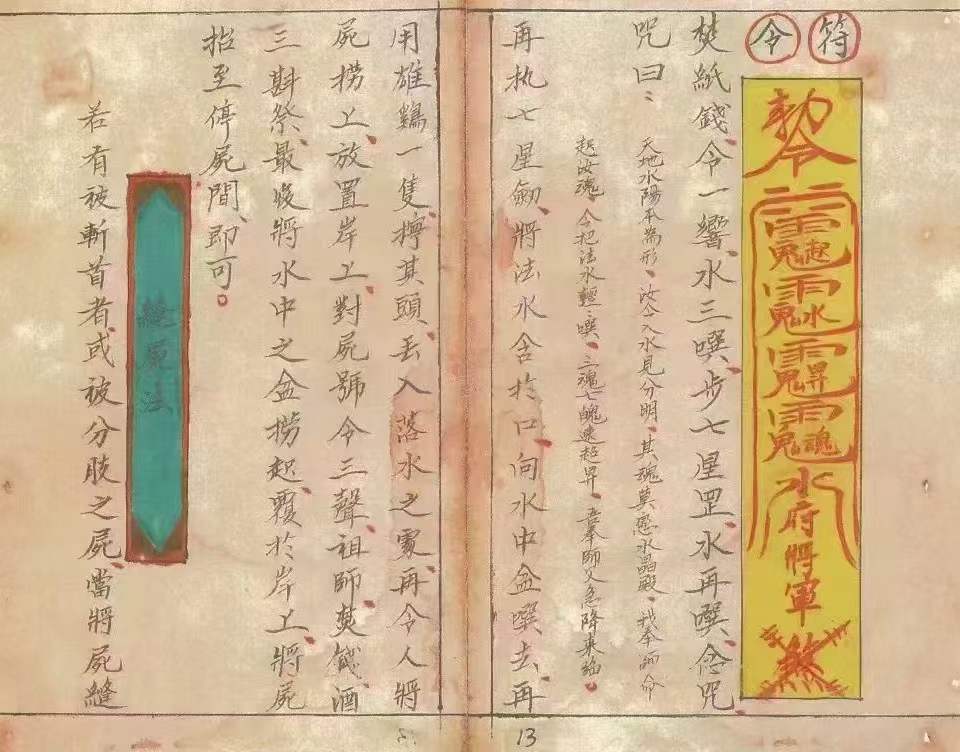 符令
勅令
起
水
昇
魂
水府將軍
煞
焚紙錢、令一響、水三噀、步七星罡、水再噀、念咒
咒曰：
天地水陽本為形、汝今入水見分明、其魂莫戀水晶殿、我奉師命
起汝魂、今把法水輕輕噀、三魂七魄速起昇、吾奉師父急降來臨。
再执七星劍、將法水含於口、向水中盆噀去、再
用雄鷄一隻、擰其頭、丟入落水之處、再令人將
屍捞上、放置岸上、對屍號令三聲、祖師焚錢、酒
三斟祭、最後將水中之盆捞起、覆於岸上、將屍
抬至停屍間、即可。
縫屍法
若有被斬首者、或被分肢之屍、當將屍縫
13